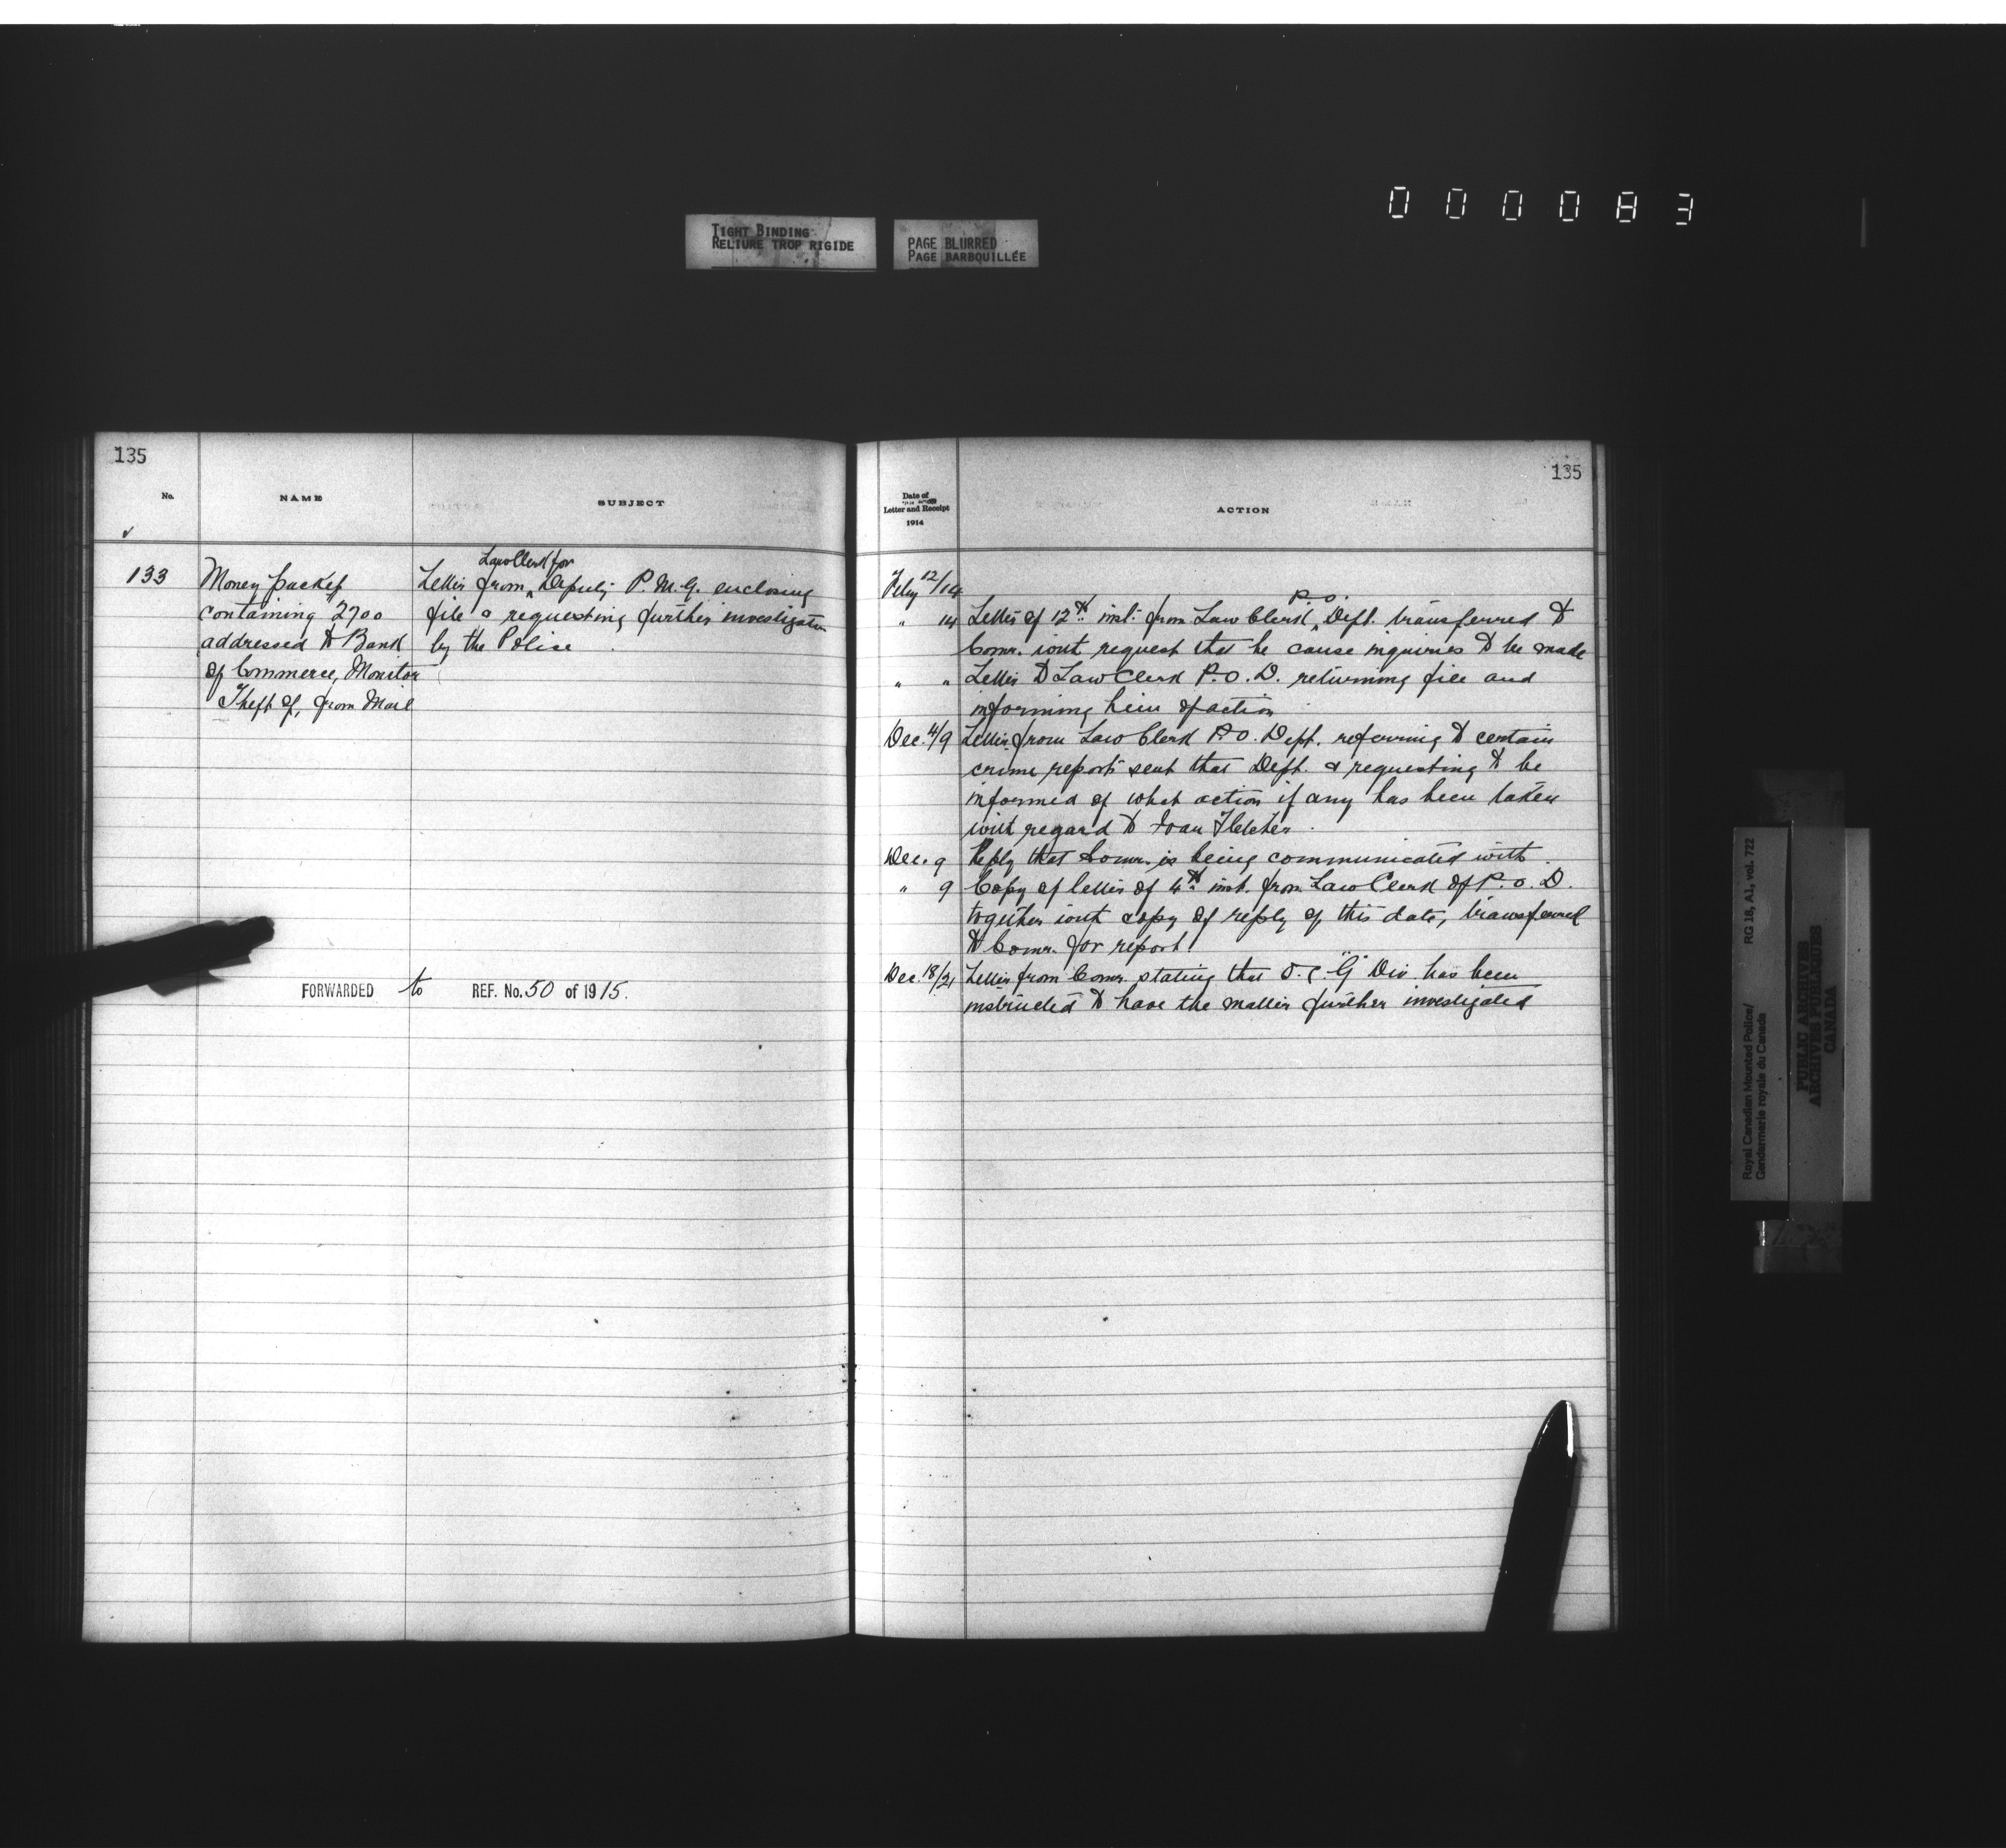 000083
TIGHT BINDING
RELIURE TROP RIGIDE
PAGE BLURRED
PAGE BARBOUILLÉE
135
No.
NAME
SUBJECT
133
Money packet
containing 2700
addressed to Bank
of Commerce, Monitor
Theft of, from Mail
Law Clerk for
Letter from Deputy P.M.G. enclosing
file & requesting further investigation
by the Police
FORWARDED to REF. No. 50 of 1915.
135
Date of
Letter and Receipt
1914
ACTION
Feby 12/14
P.O.
" 14 Letter of 12th inst. from Law Clerk Dept. transferred to
Comr. with request that he cause inquiries to be made
" " Letter to Law Clerk P.O.D. returning file and
informing him of action
Dec. 4/9 Letter from Law Clerk P.O. Dept. referring to certain
crime reports sent that Dept. & requesting to be
informed of what action if any has been taken
with regard to Fletcher.
Dec. 9 Reply that Comr. is being communicated with.
" 9 Copy of letter of 4th inst. from Law Clerk of P.O.D.
together with copy of reply of this date, transferred
to Comr. for report
Dec. 18/21 Letter from Comr. stating that O.C. "G" Div. has been
instructed to have the matter further investigated
Royal Canadian Mounted Police/
Gendarmerie royale du Canada
RG 18, A1, vol. 722
PUBLIC ARCHIVES
ARCHIVES PUBLIQUES
CANADA